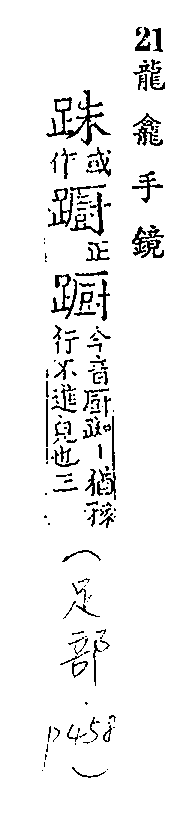 21 龍龕手鏡
跦或作𨆼正𨃕今音厨𨁮〡猶
行不進皃也三
(足部
p458)